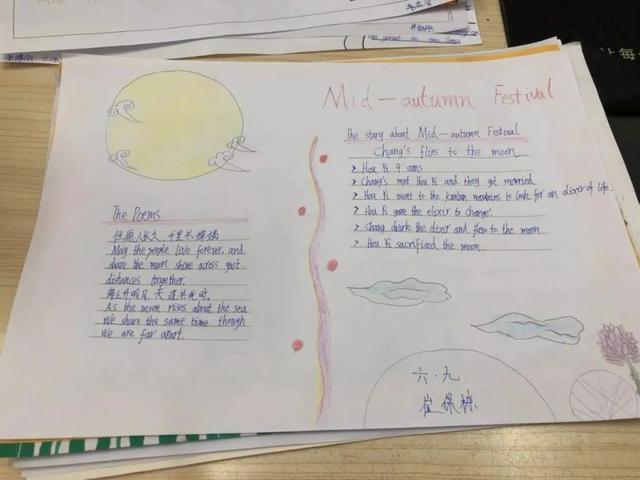 Mid-autumn Festival
The story about Mid-autumn Festival
Chang's flies to the moon
> Hou Yi 9 suns
> Chang's met Hou Yi and they get married.
> Hou Yi went to the kunlun mountains to look for an elixir of life.
> Hou Yi gave the elixir to change.
> Chang drunk the elixir and flew to the moon.
> Hou Yi sacrificed the moon.
The Poems
但愿人长久，千里共婵娟
May the people live forever, and
share the moon shine across
distances together.
海上升明月，天涯共此时.
As the moon rises about the sea
We share the same time though
We are far apart.
六·九
崔保